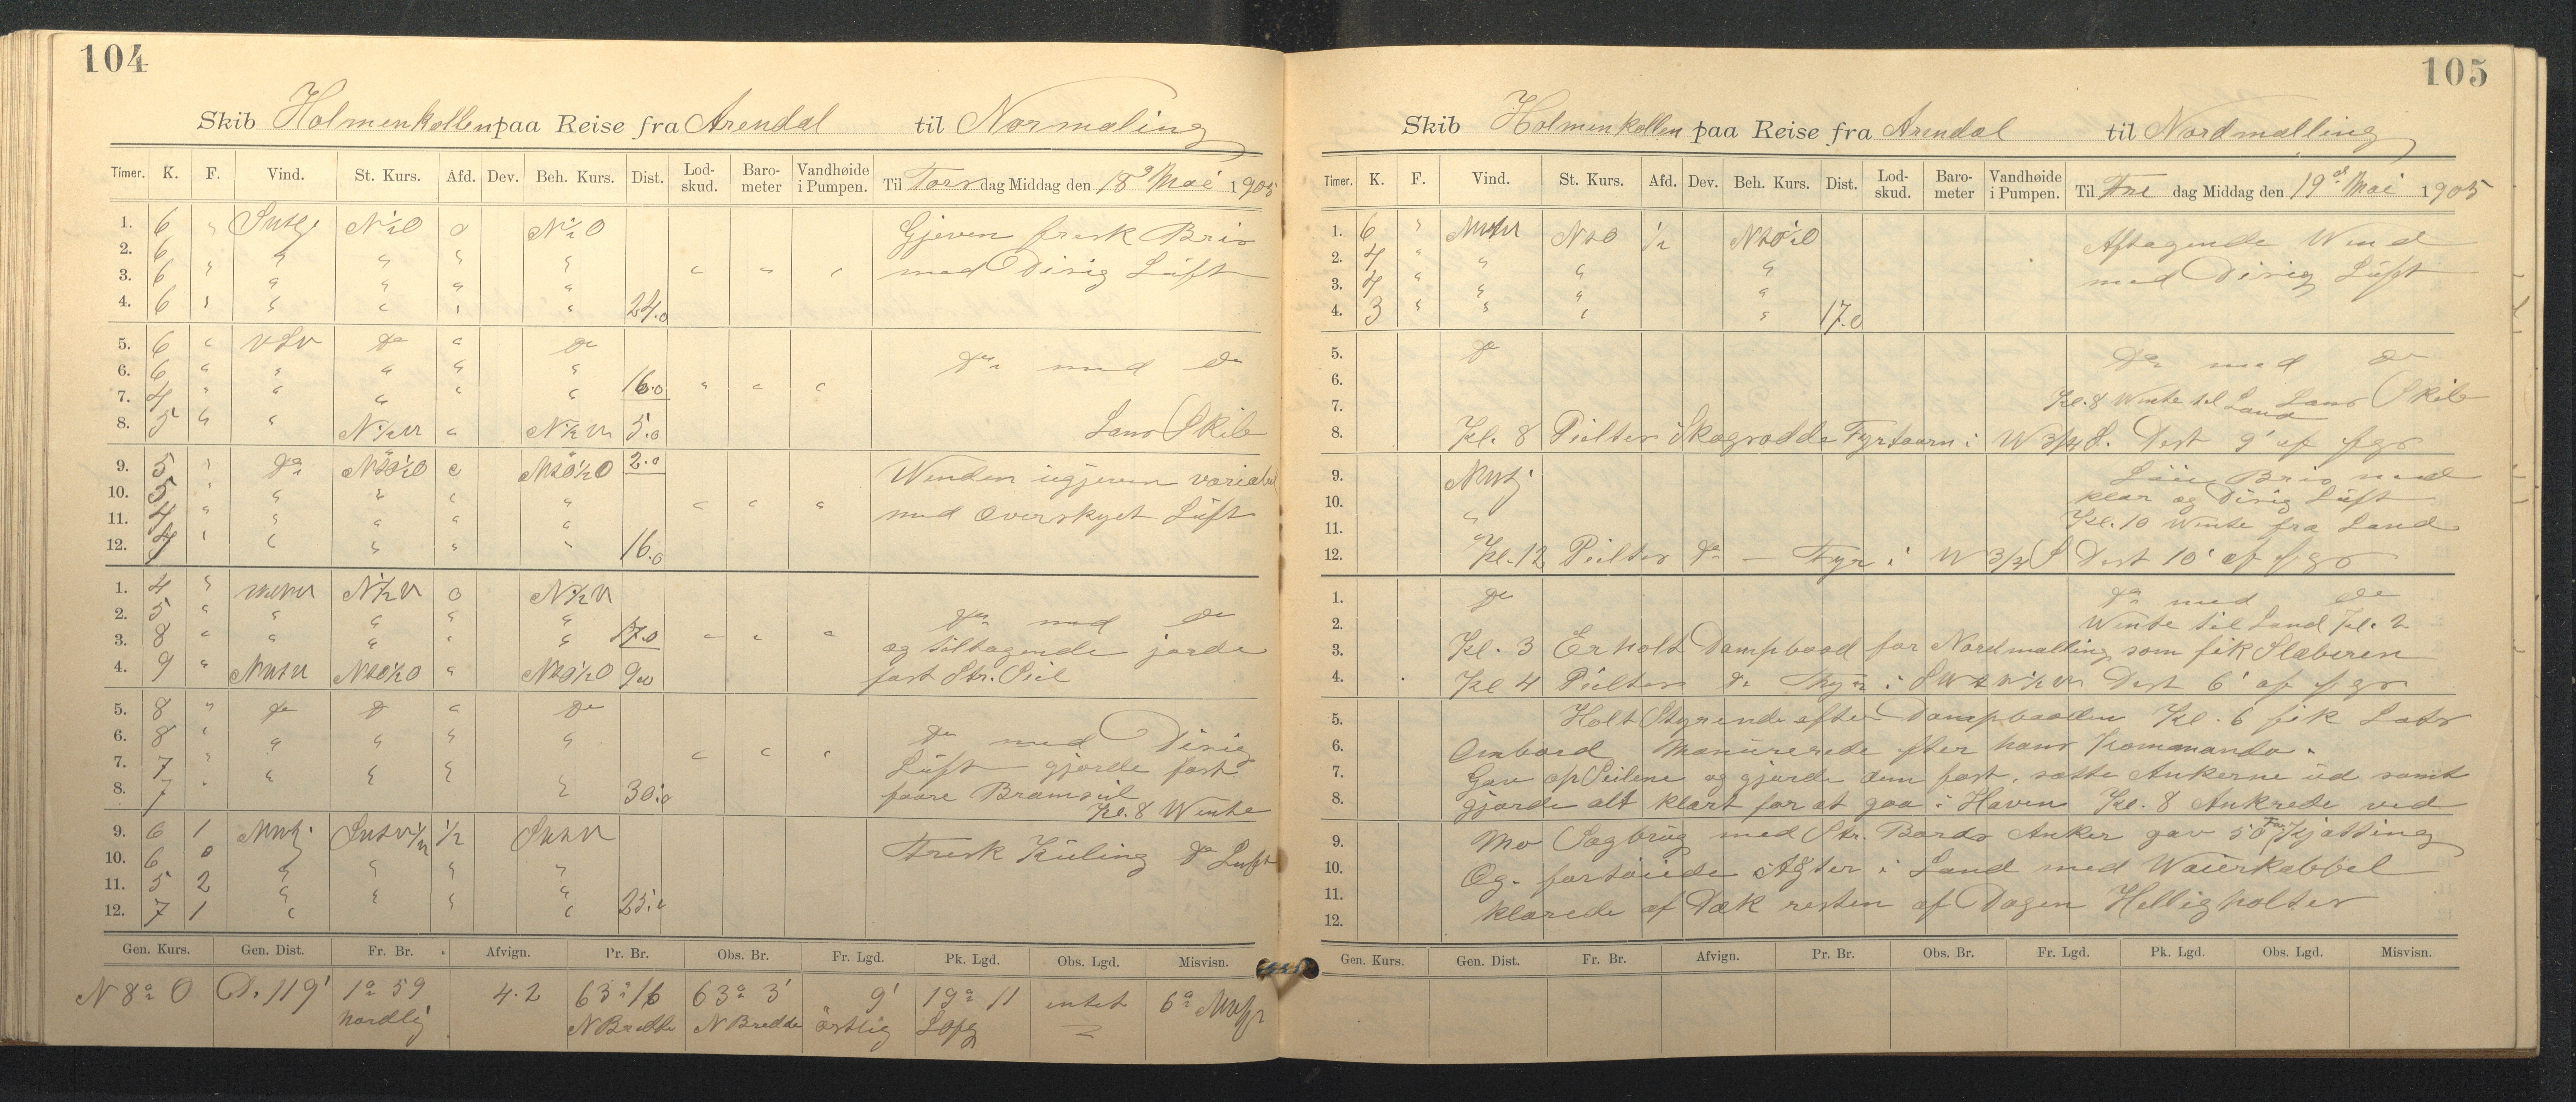 104
Skib Holmenkollen paa Reise fra Arendal til Normaling
Timer. K. F. Vind. St. Kurs. Afd. Dev. Beh. Kurs. Dist. Lod-skud. Baro-meter Vandhøide i Pumpen. Til Torsdag Middag den 18de Mai 1905
1. 6 " N½O 0 N½O Gjeven frisk Bris
2. 6 " " " "
3. 6 " " " " " " " " med Disig Lüft
4. 6 " " " " " 24.0
5. 6 " VSV do " do
6. 6 " " " " " do med do
7. 4 " " " " " 16.0 " " "
8. 5 " " N½W " N½W 5.0 Lans Skib
9. 5 " do NtO½O " NtO½O 2.0 Winden ugjeven variabel
10. 5 " " " " "
11. 4 " " " " " " " " med Overskyet Lüft
12. 4 " " " " " 16.0
1. 4 " N½W 0 N½W
2. 5 " " " " " do med do
3. 8 " " " " " 17.0 " " " og tiltagende jorde
4. 9 " NtO½O " NtO½O 9.0 fast Str. Seil
5. 8 " do do " do
6. 8 " " " " " do med Disig
7. 7 " " " " " " " " Lüft gjorde fast
8. 7 " " " " " 30.0 faare Bramseil
Kl. 8 Wente
9. 6 1 ½
10. 6 0 " " " " Frisk Küling do Luft
11. 5 2 " " " "
12. 7 1 " " " " 25.0
Gen. Kurs. Gen. Dist. Fr. Br. Afvign. Pr. Br. Obs. Br. Fr. Lgd. Pk. Lgd. Obs. Lgd. Misvisn.
N 8° O D. 119' 1° 59 nordlig 4.2 63° 16 N Bredde 63° 3' N Bredde 9' östlig 19° 11 intet 6°
105
Skib Holmenkollen paa Reise fra Arendal til Nordmalling
Timer. K. F. Vind. St. Kurs. Afd. Dev. Beh. Kurs. Dist. Lod-skud. Baro-meter Vandhøide i Pumpen. Til Fre dag Middag den 19de Mai 1905
1. 6 " NtO ½ NtO½O Aftagende Wend
2. 4 " " " "
3. 4 " " " " med Disig Lüft
4. 3 " " " " 17.0
5. do do med do
6.
7. Kl. 8 Wente til Land Lans Skib
8. Kl. 8 Peilter Skagsodde Fyrtaarn i W 3/4 S. Dist 9' af fgs
9. Löie Bris med
10. klar og Disig Lüft
11. " Kl. 10 Wente fra Land
12. Kl. 12 Peilter do — Fyr i W 3/4 S Dist 10' af fgs
1. do do med do
2. Wente til Land Kl. 2
3. Kl. 3 Erholt Dampbaad for Nordmalling som fik Slæberen
4. Kl 4 Peilter do Fyr i Dist 6' af fgs
5. Holt Styrende efter Dampbaaden Kl. 6 fik Lods
6. Ombord Manürerede efter hans Komanando.
7. Gav op Seilene og gjorde dem fast, satte Ankerne üd samt
8. gjorde alt klart for at gaa i Haven Kl. 8 Ankrede ved
9. Mo Sagbrüg med Str. Bords Anker gav 50 Fm Kjætting
10. Og fortøiede Agter i Land med Waierkabbel
11. klarede af Dæk resten af Dagen Helligholter
12.
Gen. Kurs. Gen. Dist. Fr. Br. Afvign. Pr. Br. Obs. Br. Fr. Lgd. Pk. Lgd. Obs. Lgd. Misvisn.